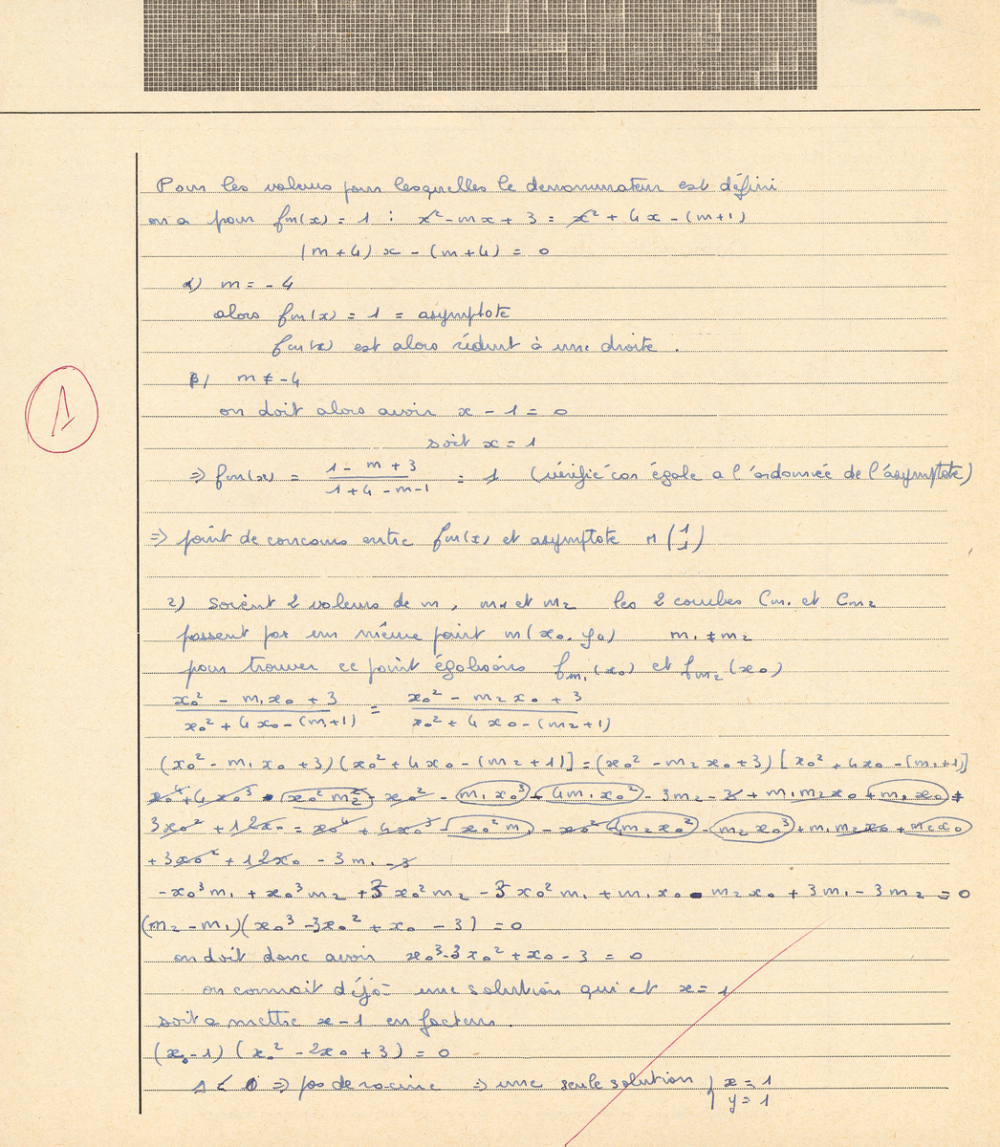 Pour les valeurs pour lesquelles le denonumateur est défini
on a pour fm(x) = 1 : x² - mx + 3 = x² + 4x - (m+1)
(m+4) x - (m+4) = 0
α) m = -4
alors fm(x) = 1 = asymptote
fm(x) est alors réduit à une droite.
β) m ≠ -4
on doit alors avoir x - 1 = 0
soit x = 1
1
⇒ fm(x) = (1 - m + 3)/(1 + 4 - m - 1) = 1 (vérifié car égale a l'ordonnée de l'asymptote)
⇒ point de concours entre fm(x) et asymptote M (1 1)
2) Soient 2 valeurs de m, m1 et m2 les 2 courbes Cm1 et Cm2
passent par un même point m(x0, y0) m1 ≠ m2
pour trouver ce point égalisons fm1(x0) et fm2(x0)
(x0² - m1x0 + 3)/(x0² + 4x0 - (m1+1)) = (x0² - m2x0 + 3)/(x0² + 4x0 - (m2+1))
(x0² - m1x0 + 3)(x0² + 4x0 - (m2+1)] = (x0² - m2x0 + 3) [x0² + 4x0 - (m1+1)]
x0⁴ + 4x0³ - x0²m2 - x0² - m1x0³ - 4m1x0² - 3m2 - 3 + m1m2x0 + m1x0 +
3x0² + 12x0 = x0⁴ + 4x0³ - x0²m1 - x0² - 4m2x0² - m2x0³ + m1m2x0 + m2x0
+ 3x0² + 12x0 - 3m1 - 3
-x0³m1 + x0³m2 + 3x0²m2 - 3x0²m1 + m1x0 - m2x0 + 3m1 - 3m2 = 0
(m2 - m1)(x0³ - 3x0² + x0 - 3) = 0
on doit donc avoir x0³ - 3x0² + x0 - 3 = 0
on connait déjà une solution qui et x = 1
soit a mettre x - 1 en facteur.
(x0 - 1)(x0² - 2x0 + 3) = 0
Δ < 0 ⇒ pas de racine ⇒ une seule solution | x = 1
| y = 1